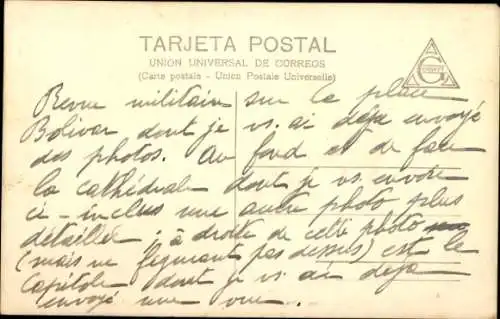 TARJETA POSTAL
UNION UNIVERSAL DE CORREOS
(Carte postale - Union Postale Universelle)
Revue militaire sur la place
Bolivar dont je vs. ai déja envoyé
des photos. Au fond et de face
la cathédrale dont je vs. envoie
ci-inclus une autre photo plus
détaillée ; à droite de cette photo
(mais ne figurant pas dessus) est le
Capitole dont je vs ai déja
envoyé une vue.